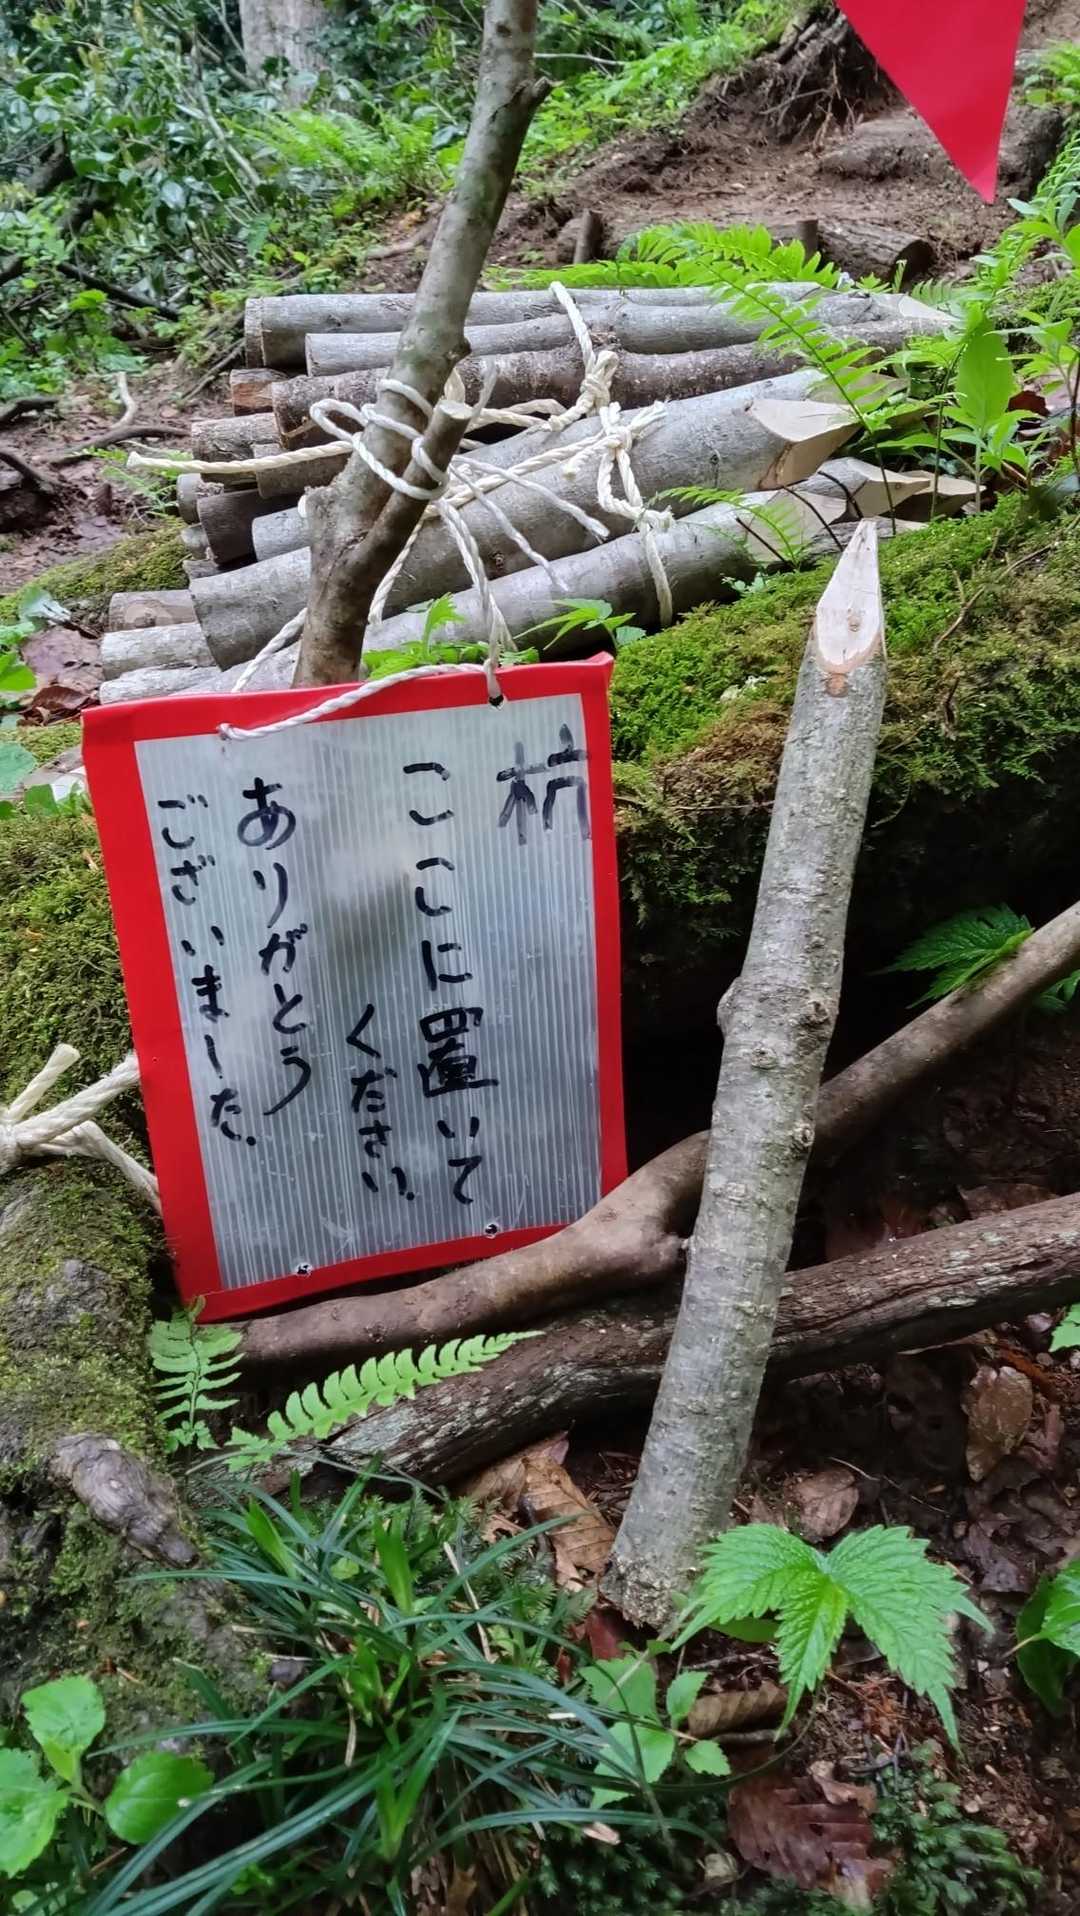 杭
ここに置いて
ください。
ありがとう
ございました。